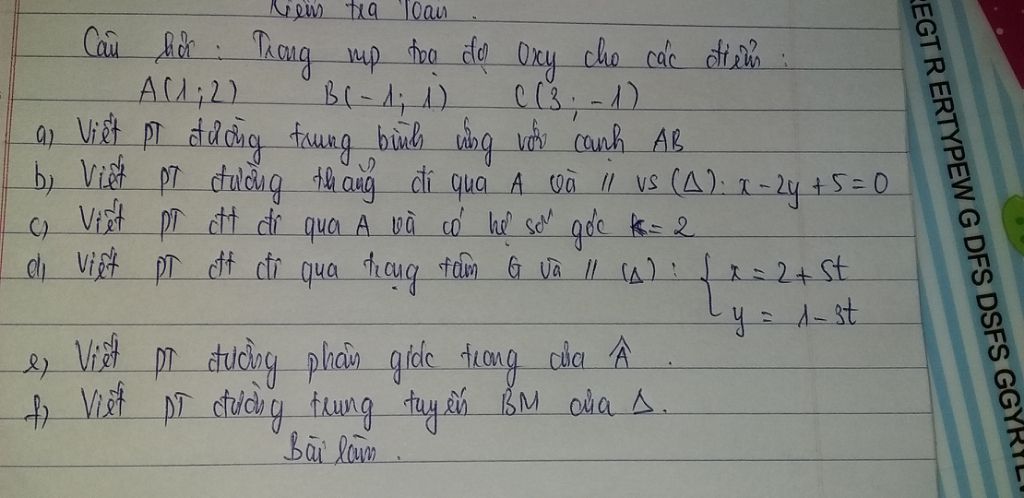 Kiểm tra Toán.
Câu hỏi : Trong mp toạ độ Oxy cho các điểm :
A(1;2) B(-1;1) C(3;-1)
a) Viết PT đường trung bình ứng với cạnh AB
b) Viết PT đường thẳng đi qua A và // vs (Δ): x - 2y + 5 = 0
c) Viết PT đt đi qua A và có hệ số góc k = 2
d) Viết PT đt đi qua trọng tâm G và // (Δ) : { x = 2 + 5t
y = 1 - 3t
e) Viết PT đường phân giác trong của Â .
f) Viết PT đường trung tuyến BM của Δ.
Bài làm .
EGT R ERTYPEW G DFS DSFS GGYRYE